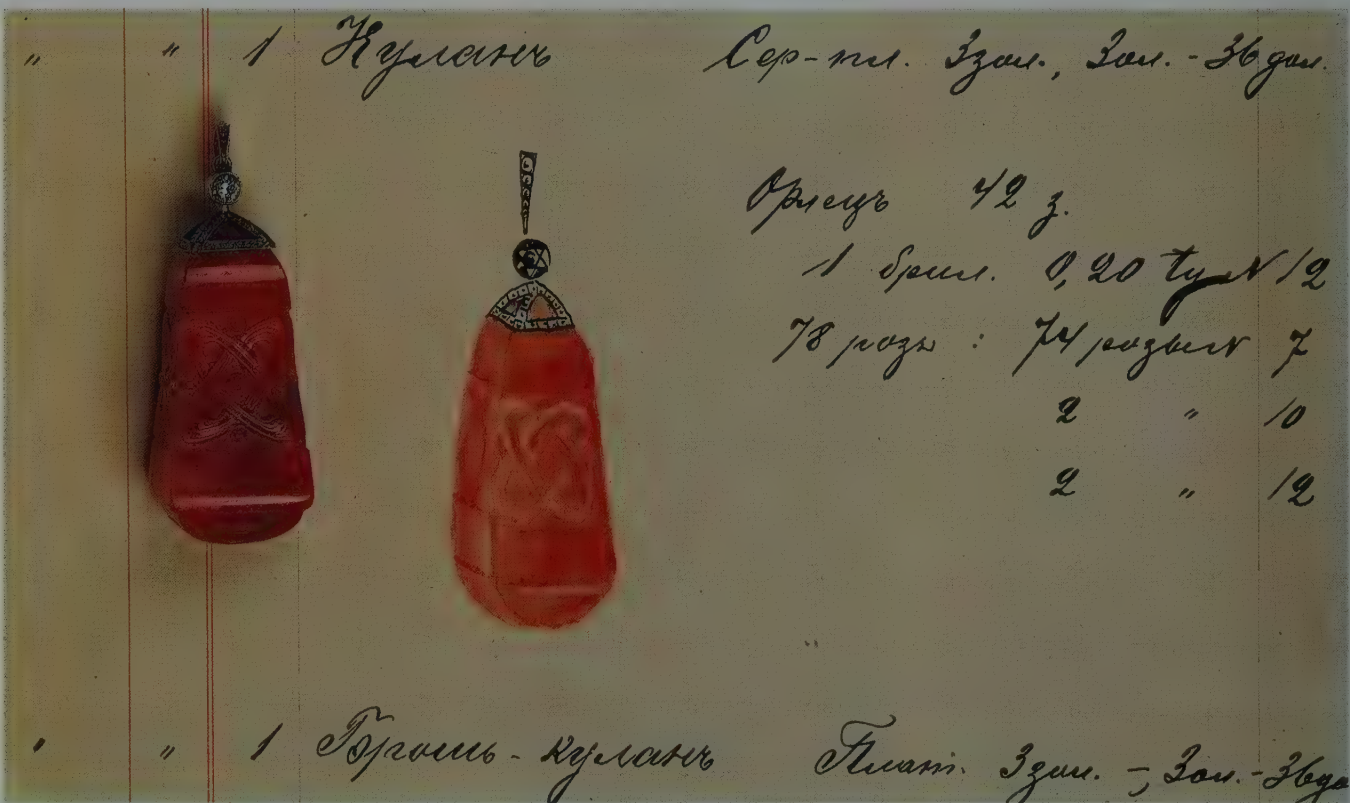 " " 1 Куланъ Сер-пл. 3 зол., Зол. - 36 дол.
Орлецъ 42 з.
1 брил. 0,20 № 12
78 розъ : 74 розы № 7
2 " 10
2 " 12
" " 1 Брошь-куланъ Плат. 3 зол. -, Зол. - 36 до